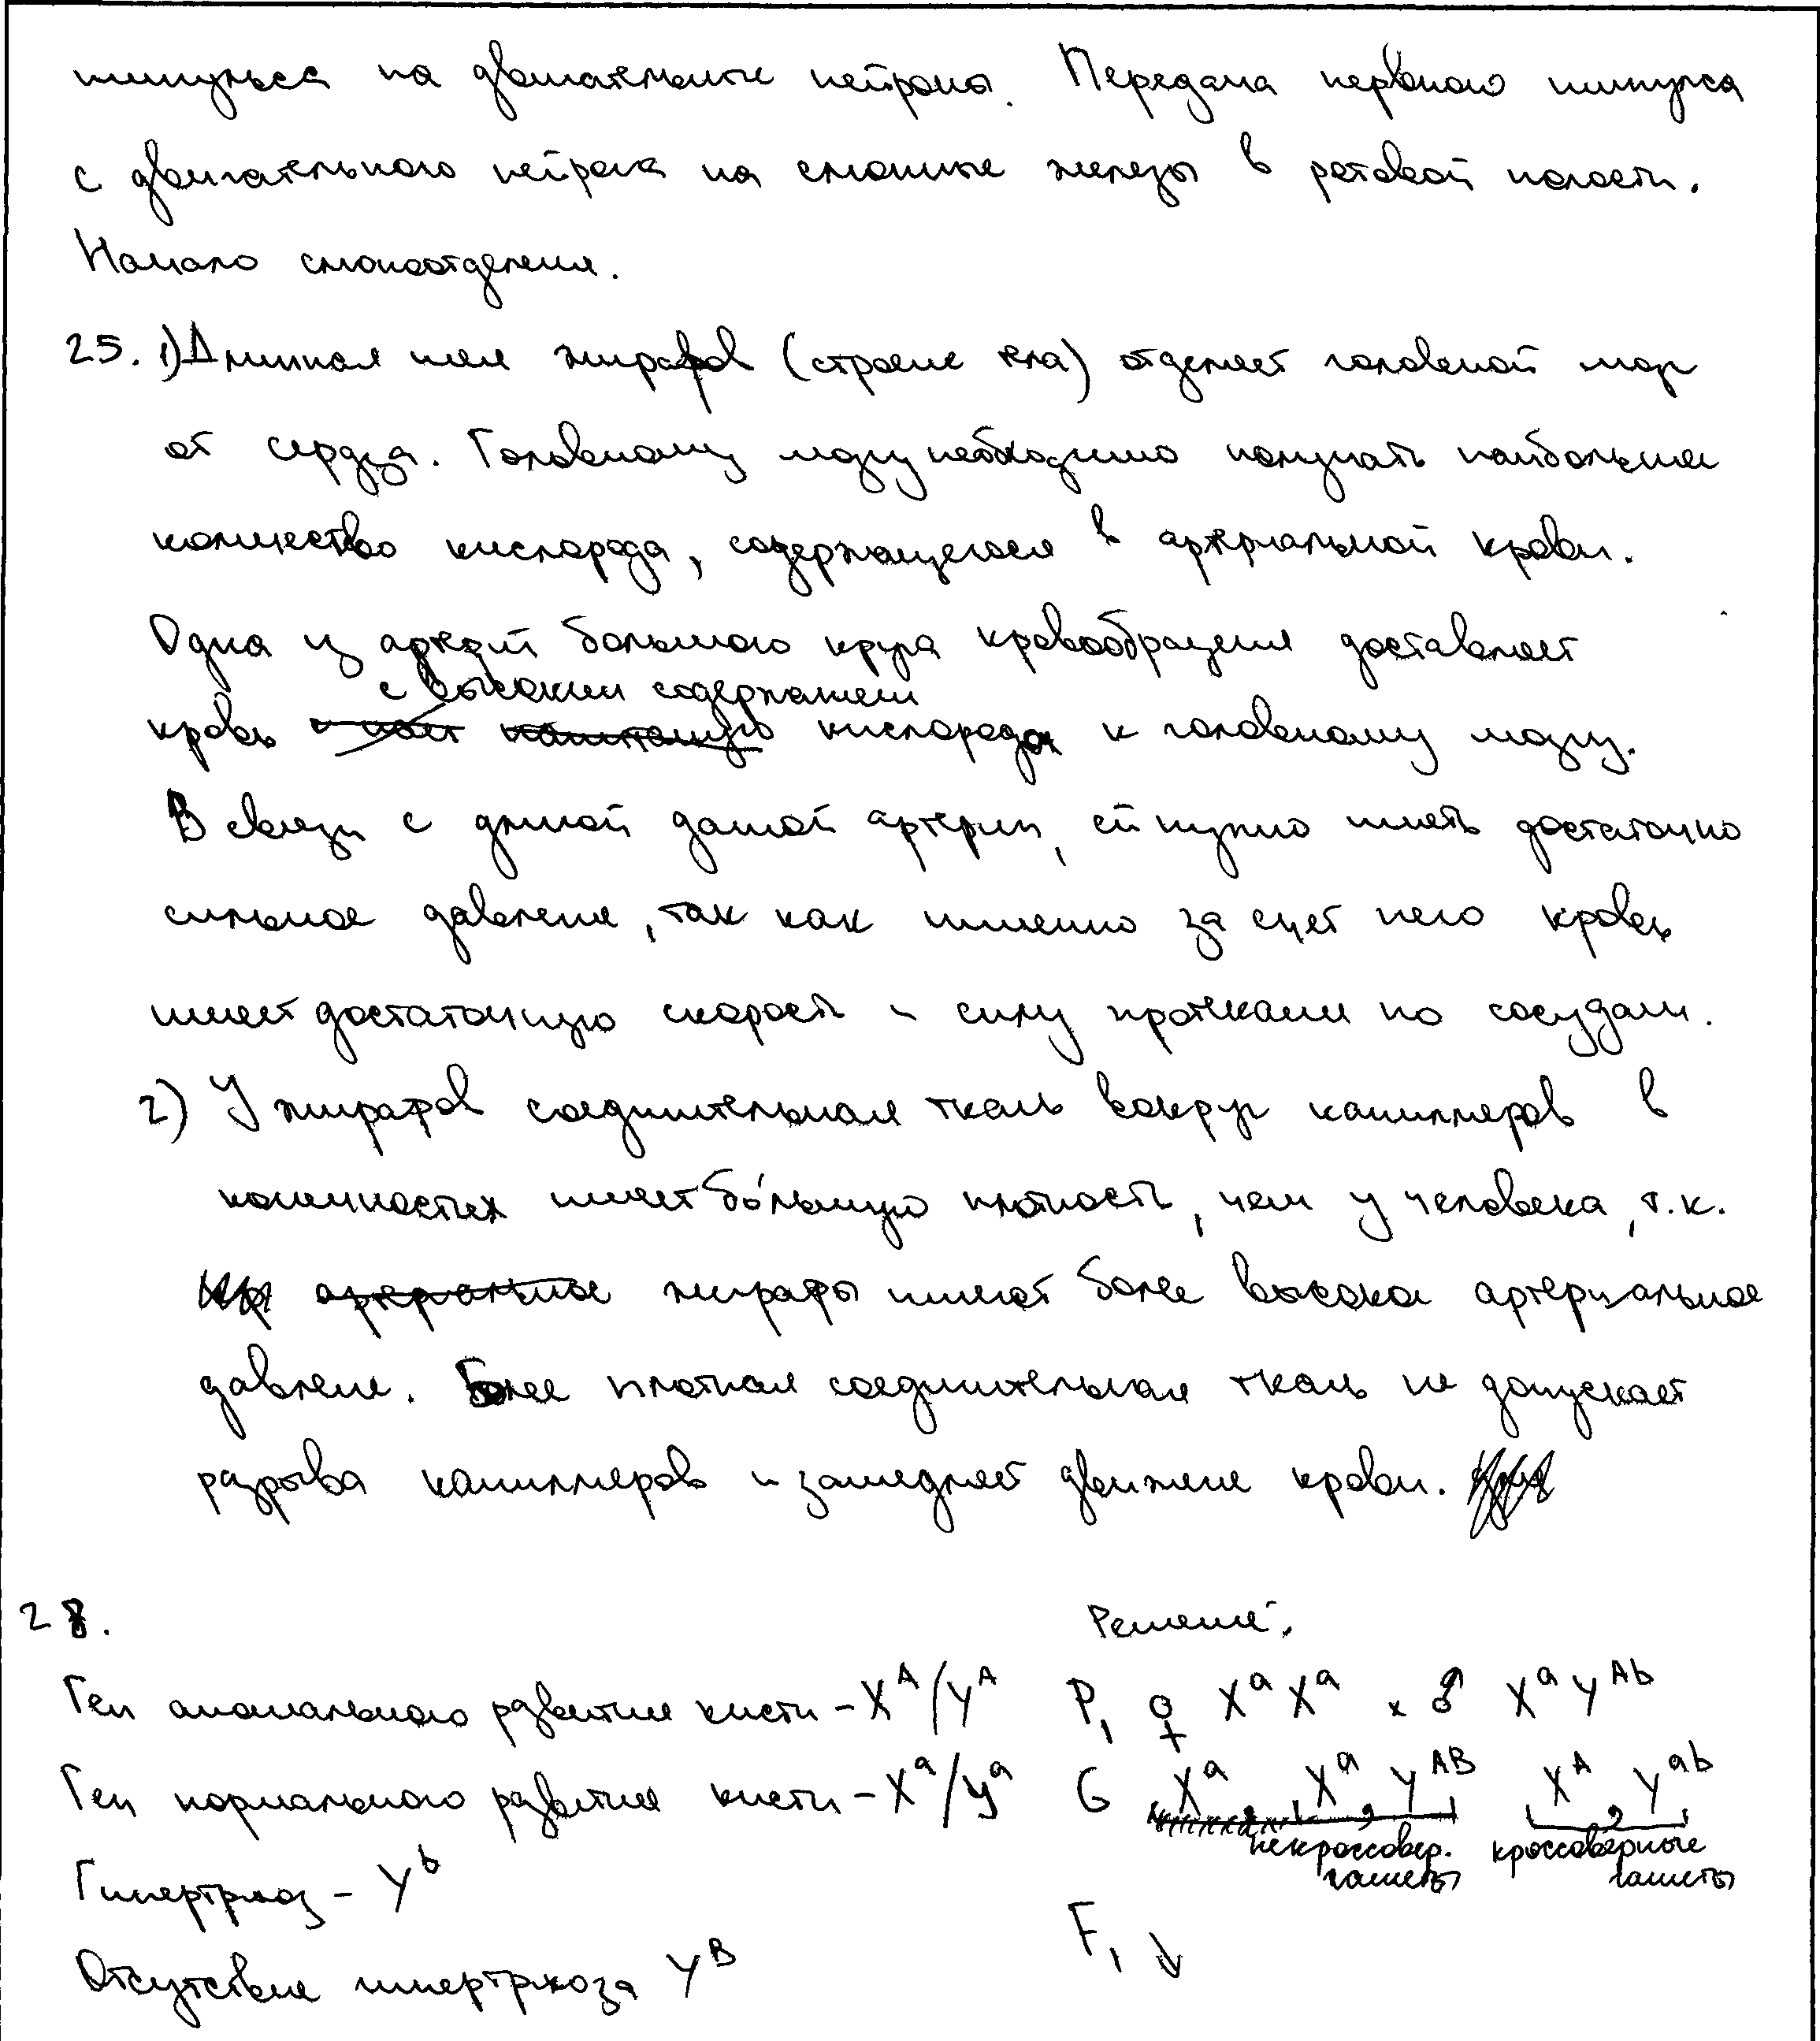 импульса на двигательные нейроны. Передача нервного импульса
с двигательного нейрона на слюнные железы в ротовой полости.
Начало слюноотделения.
25. 1) Длинная шея жирафов (строение тела) отделяет головной мозг
от сердца. Головному мозгу необходимо получать наибольшее
количество кислорода, содержащегося в артериальной крови.
Одна из артерий большого круга кровообращения доставляет
с высоким содержанием
кровь кислорода к головному мозгу.
В связи с длиной данной артерии, ей нужно иметь достаточно
сильное давление, так как именно за счет него кровь
имеет достаточную скорость и силу протекания по сосудам.
2) У жирафов соединительная ткань вокруг капилляров в
конечностях имеет бо́льшую плотность, чем у человека, т.к.
артериальное жирафы имеют более высокое артериальное
давление. Более плотная соединительная ткань не допускает
разрыва капилляров и замедляет движение крови.
28. Решение:
Ген аномального развития кисти - X^A/Y^A P₁ ♀ X^a X^a × ♂ X^a Y^Ab
Ген нормального развития кисти - X^a/Y^a G X^a, X^a, Y^AB X^A, Y^ab
некроссовер. гаметы кроссоверные гаметы
Гипертрихоз - Y^b
F₁ ↓
Отсутствие гипертрихоза Y^B